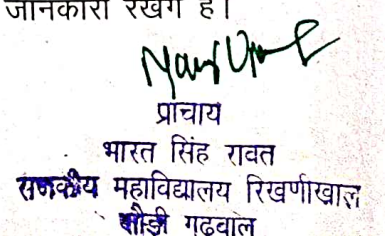 जानकारी रखेंगे है।
प्राचार्य
भारत सिंह रावत
राजकीय महाविद्यालय रिखणीखाल
पौड़ी गढ़वाल